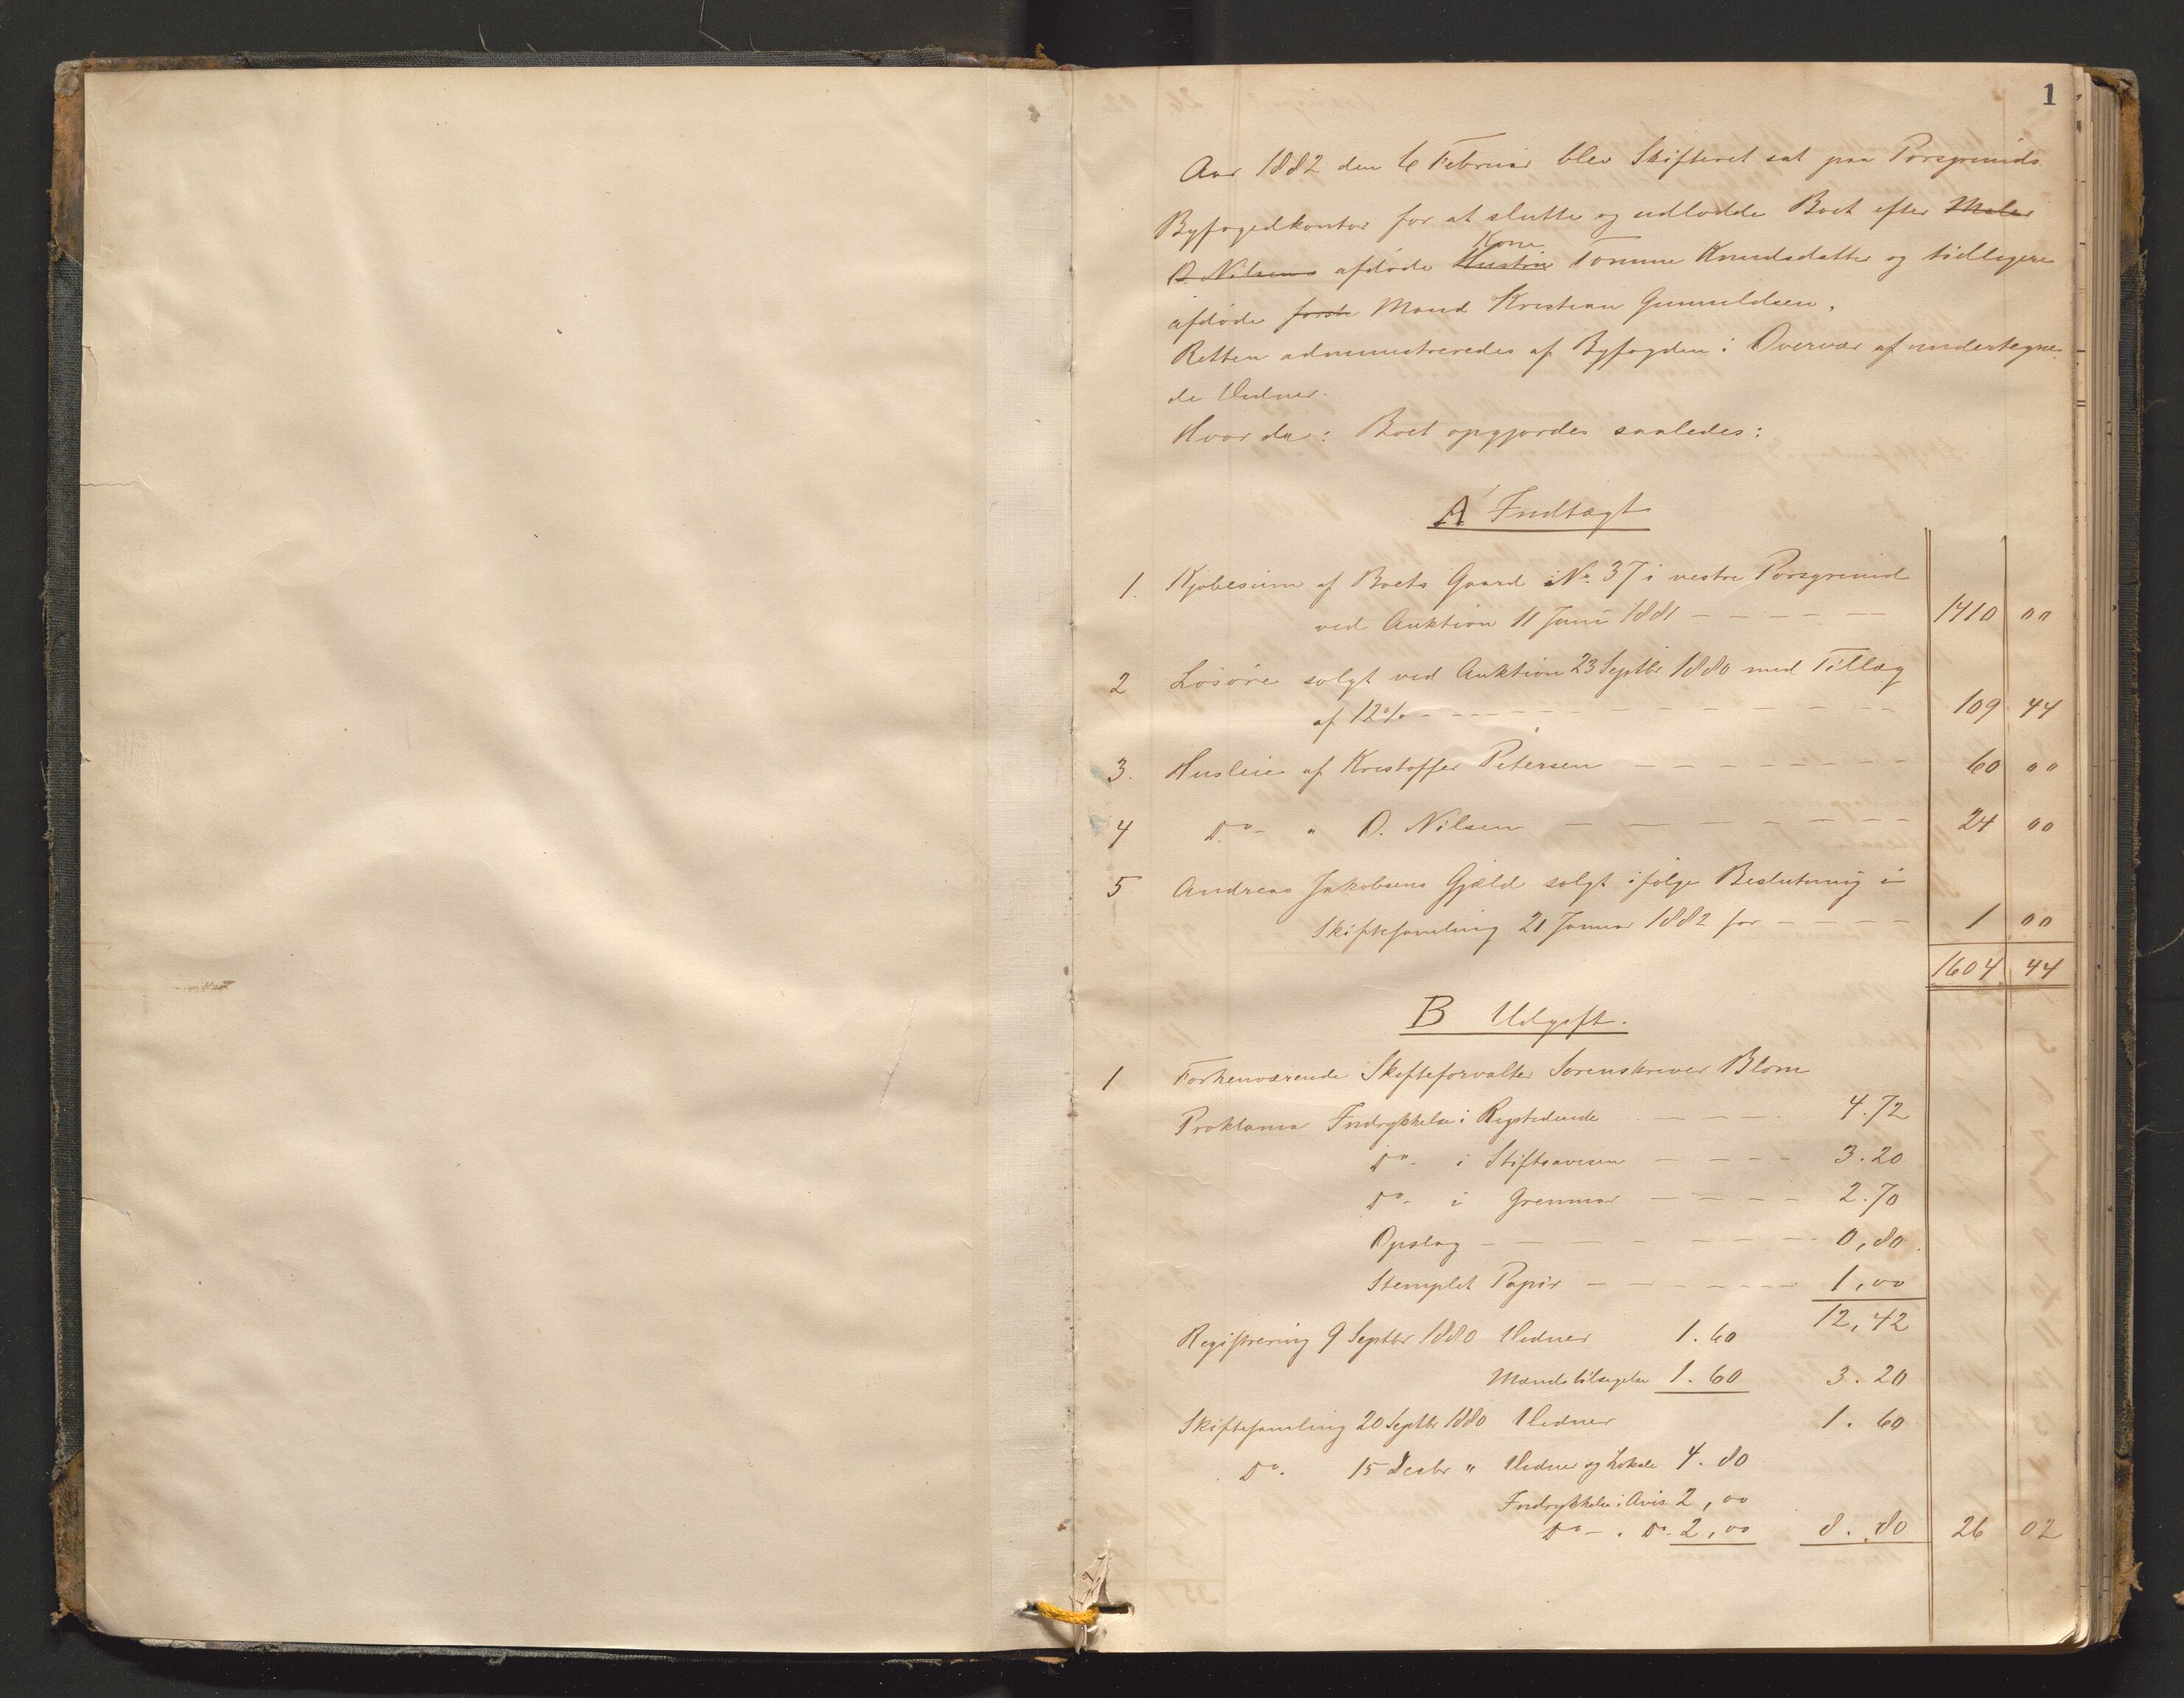 1
Aar 1882 den 6 Februar blev Skifteret sat paa Porsgrunds
Byfogedkontor for at slutte og udlodde Boet efter Maler
O. Nilsens afdøde Hustru Kone Tomine Knudsdatter og tidligere
afdøde første Mand Kristian Gunnuldsen.
Retten administreredes af Byfogden i Overvær af undertegne
de Vidner.
Hvor da: Boet opgjordes saaledes:
A Indtægt
1. Kjøbesum af Boets Gaard No 37 i vestre Porsgrund
ved Auktion 11 Juni 1881 - - - - 1410 00
2 Løsøre solgt ved Auktion 23 Septbr 1880 med Tillæg
af 12% - - - - 109 44
3. Husleie af Kristoffer Petersen - - - - 60 00
4 Do - " O. Nilsen - - - - 24 00
5 Andreas Jakobsens Gjæld solgt ifølge Beslutning i
Skiftesamling 21 Januar 1882 for - - - - 1 00
1604 44
B Udgift.
1 Forhenværende Skifteforvalter Sorenskriver Blom
Proklama Indrykkelse i Rigstidende - - - 4.72
Do - i Stiftsavisen - - - - 3.20
Do - i Grenmar - - - - 2.70
Opslag - - - - 0,80
Stemplet Papir - - - - 1,00
12,42
Registrering 9 Septbr 1880 Vidner 1.60
Mændstilsigelse 1.60 3.20
Skiftesamling 20 Septbr 1880 Vidner 1.60
Do. 15 Decbr " Vidner og Lokale 4.80
Indrykkelse i Avis 2,00
Do - . Do. 2,00 8.80 26 02